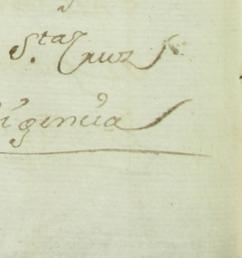 S.ta Cruz
igencia